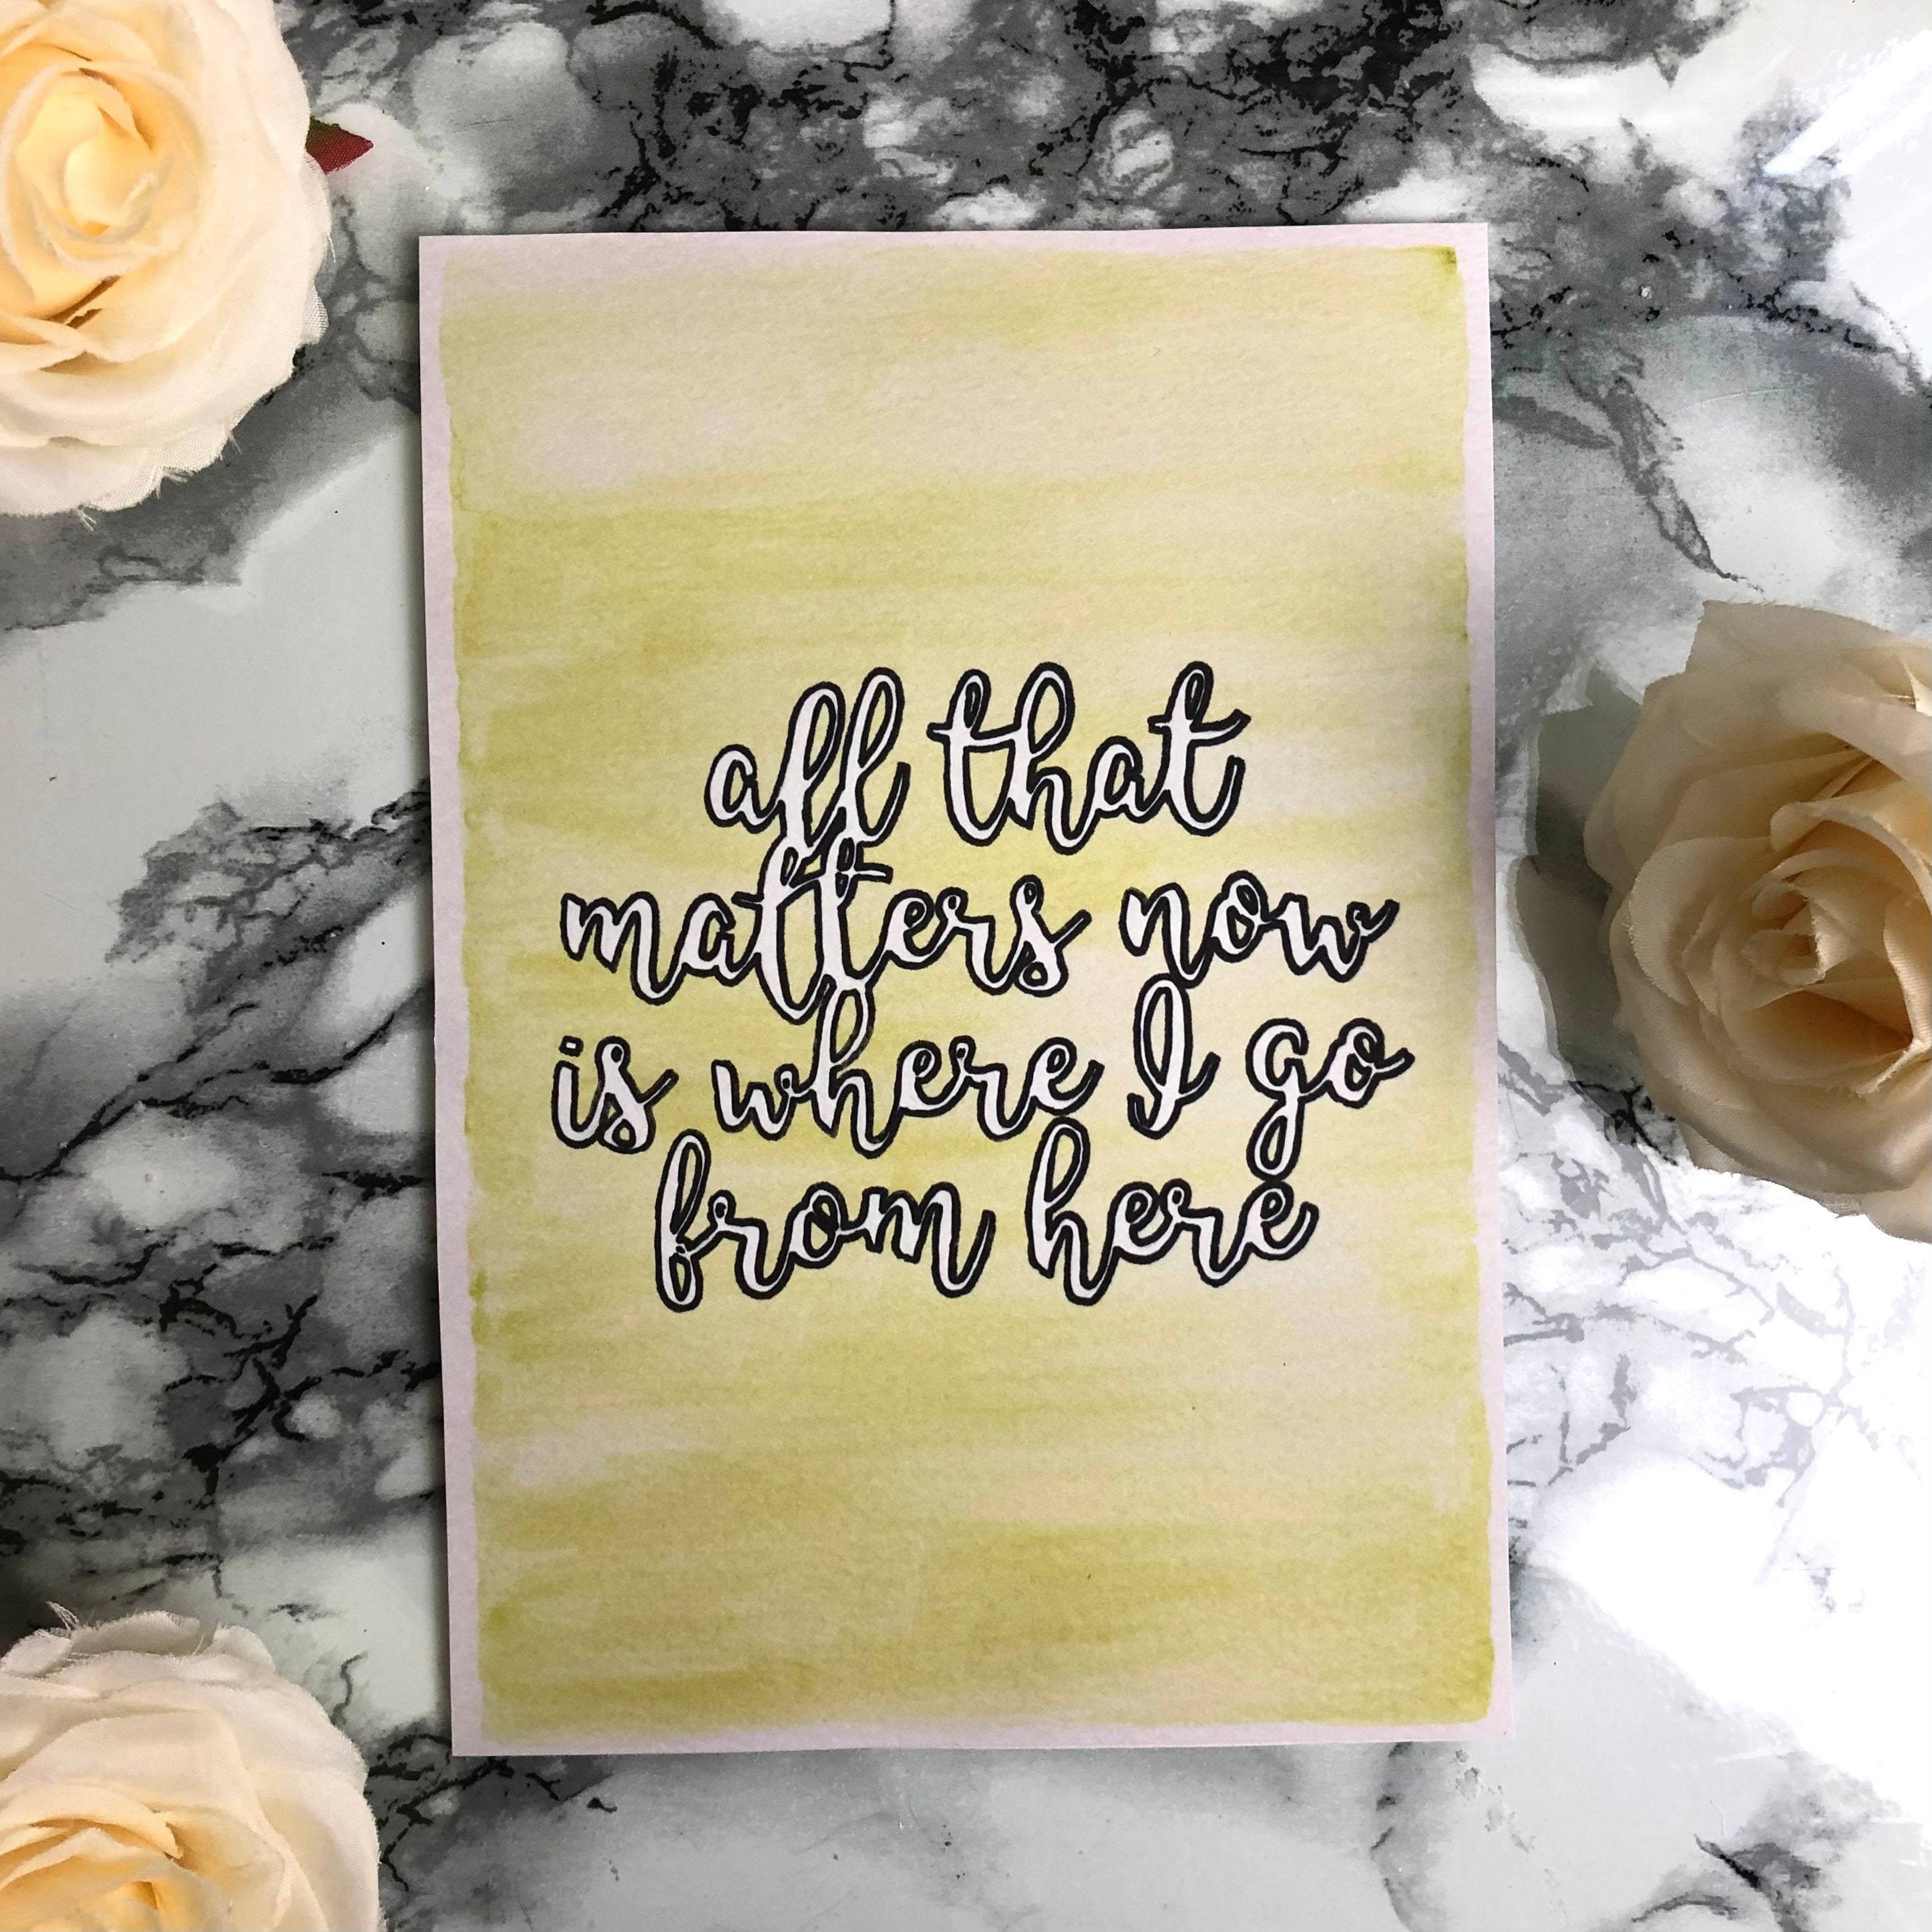 all that
matters now
is where I go
from here